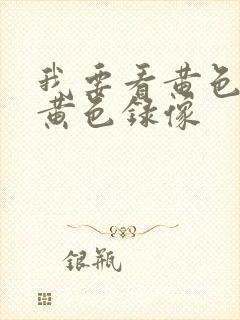 我要看黄色
黄色録像
银瓶